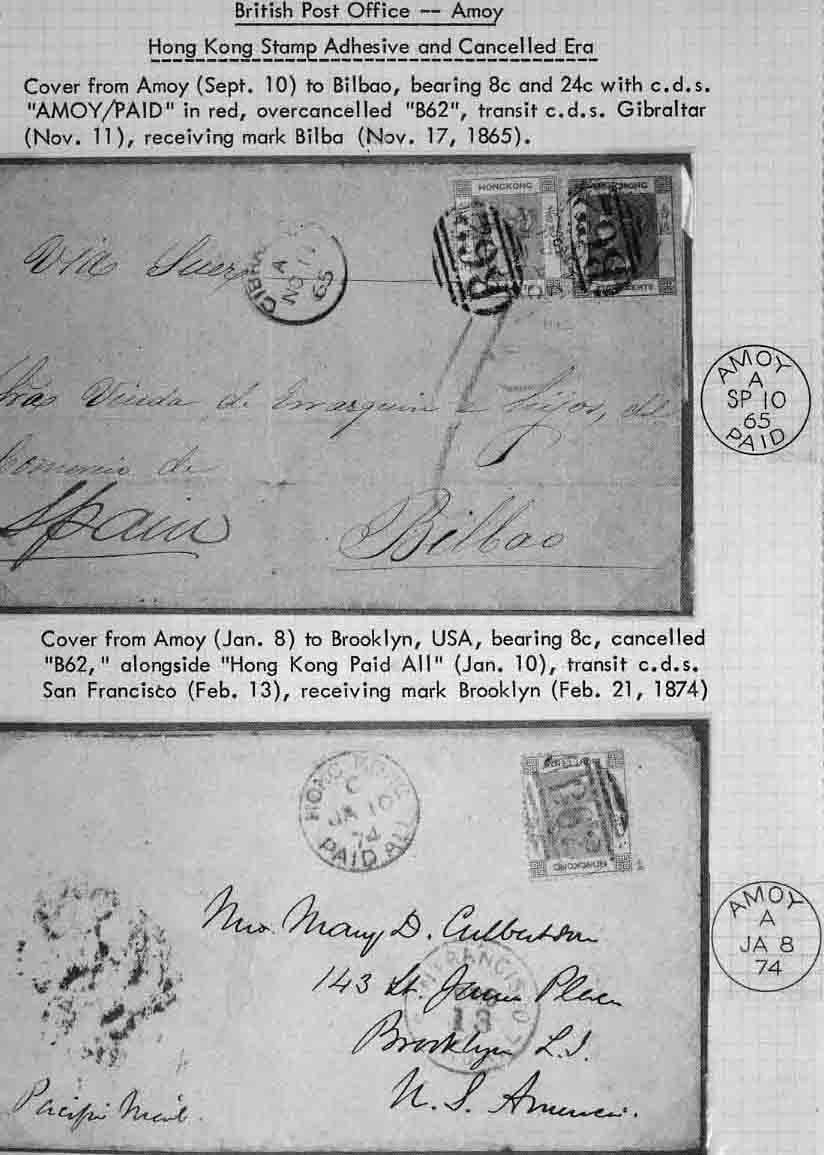 British Post Office -- Amoy
Hong Kong Stamp Adhesive and Cancelled Era
Cover from Amoy (Sept. 10) to Bilbao, bearing 8c and 24c with c.d.s.
"AMOY/PAID" in red, overcancelled "B62", transit c.d.s. Gibraltar
(Nov. 11), receiving mark Bilba (Nov. 17, 1865).
HONGKONG
B62
CENTS
Via Suez
GIBRA
A
NO 11
65
AMOY
A
SP 10
65
PAID
Viuda de
hijos, del
Comercio de
Spain
Bilbao
Cover from Amoy (Jan. 8) to Brooklyn, USA, bearing 8c, cancelled
"B62," alongside "Hong Kong Paid All" (Jan. 10), transit c.d.s.
San Francisco (Feb. 13), receiving mark Brooklyn (Feb. 21, 1874)
HONG KONG
C
JA 10
74
PAID ALL
B62
HONGKONG
AMOY
A
JA 8
74
Mrs. Mary D. Culbertson
143 St. James Place
FRANCISCO
13
Brooklyn L.I.
U. S. America.
Pacific Mail.